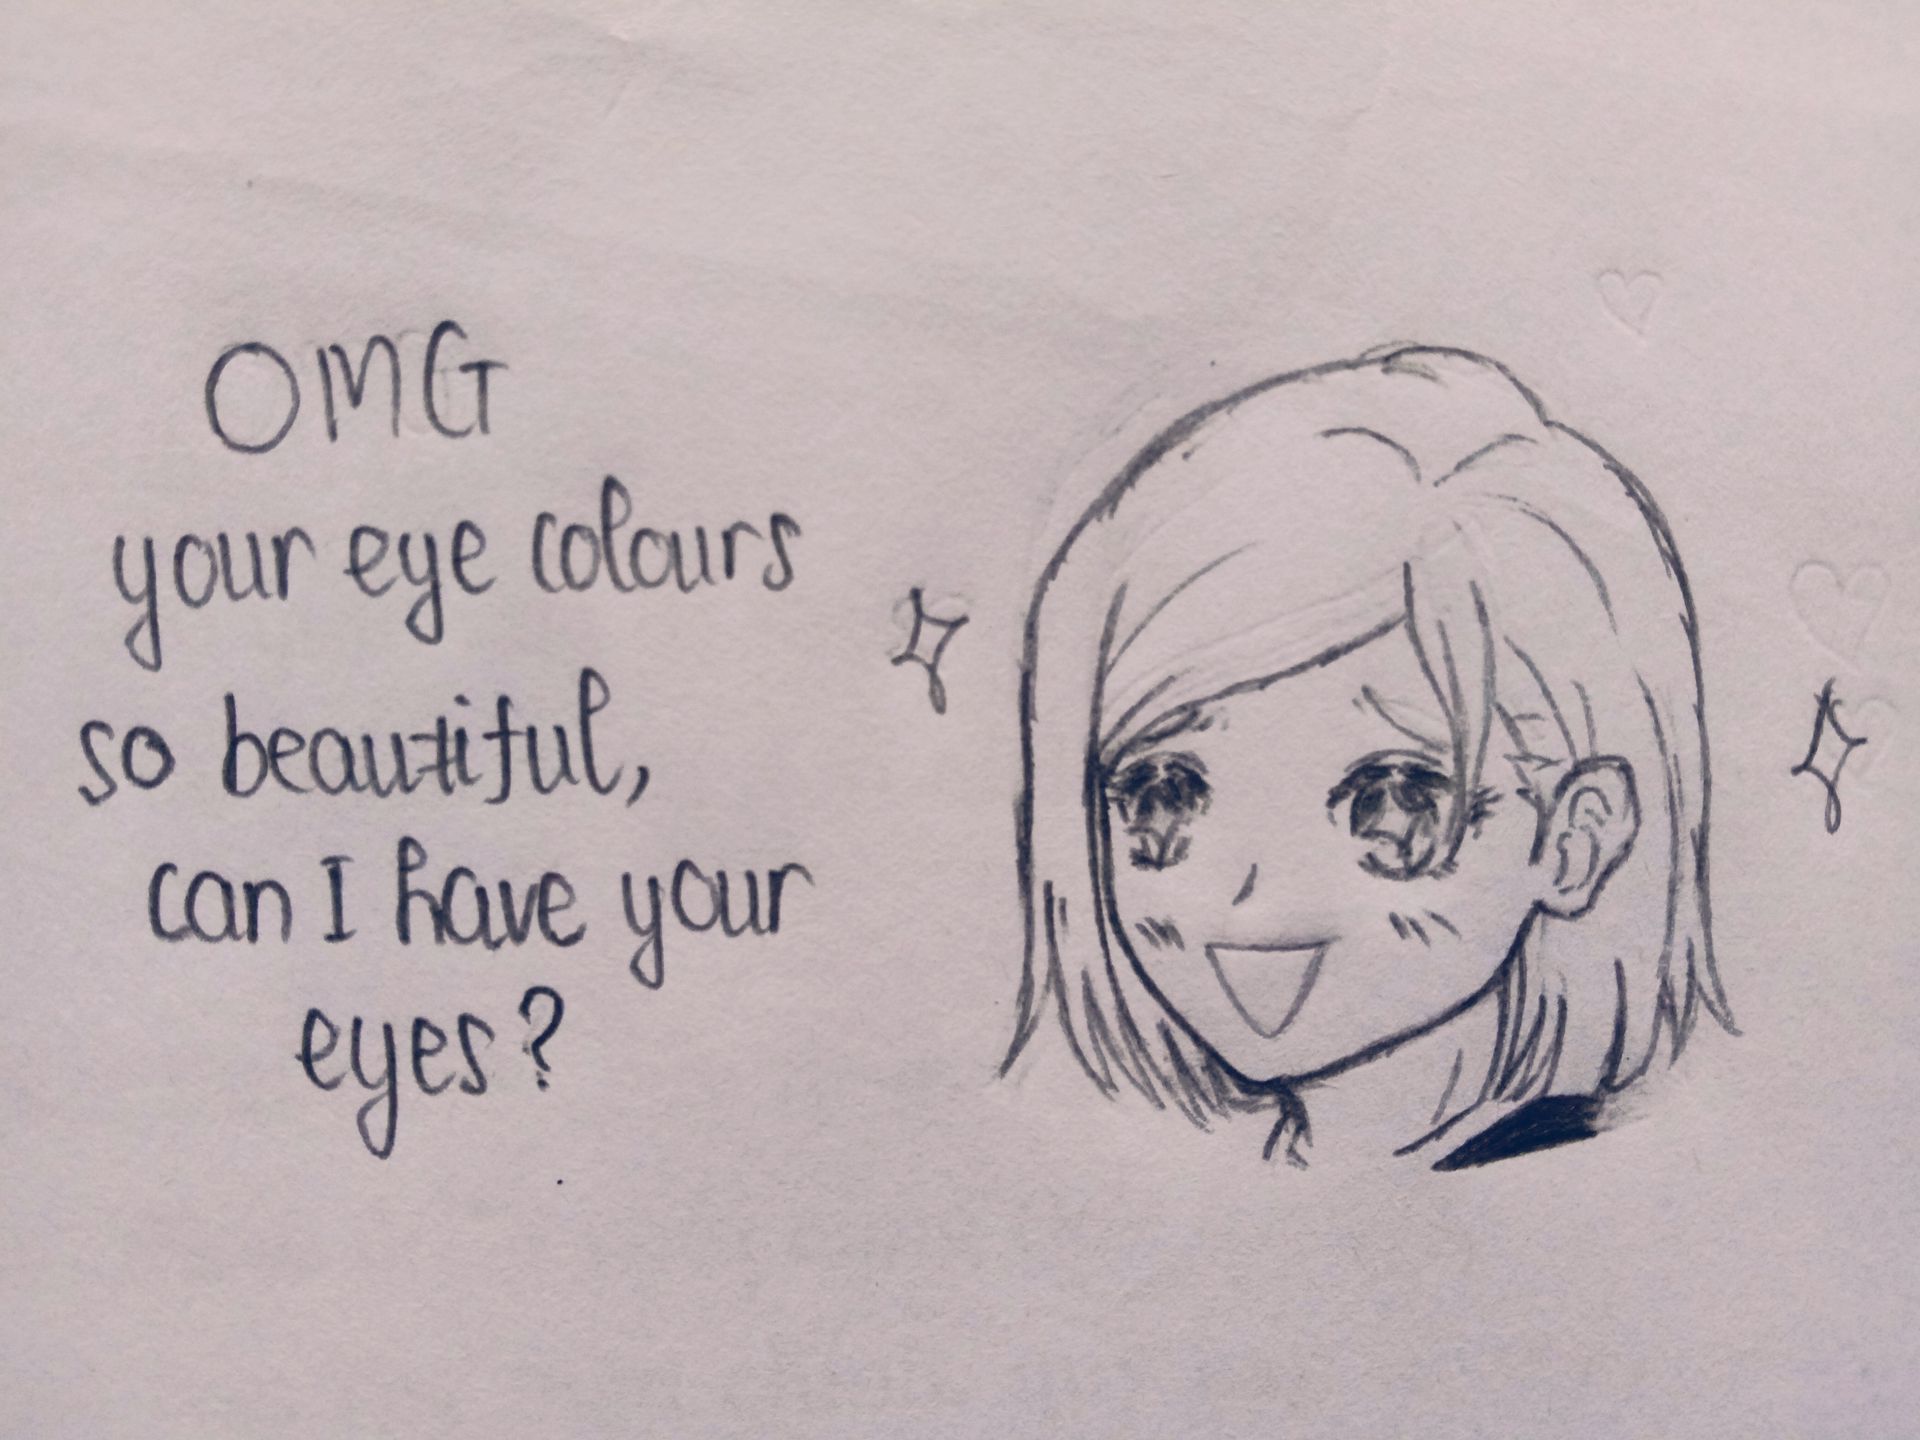 OMG
your eye colours
so beautiful,
can I have your
eyes?